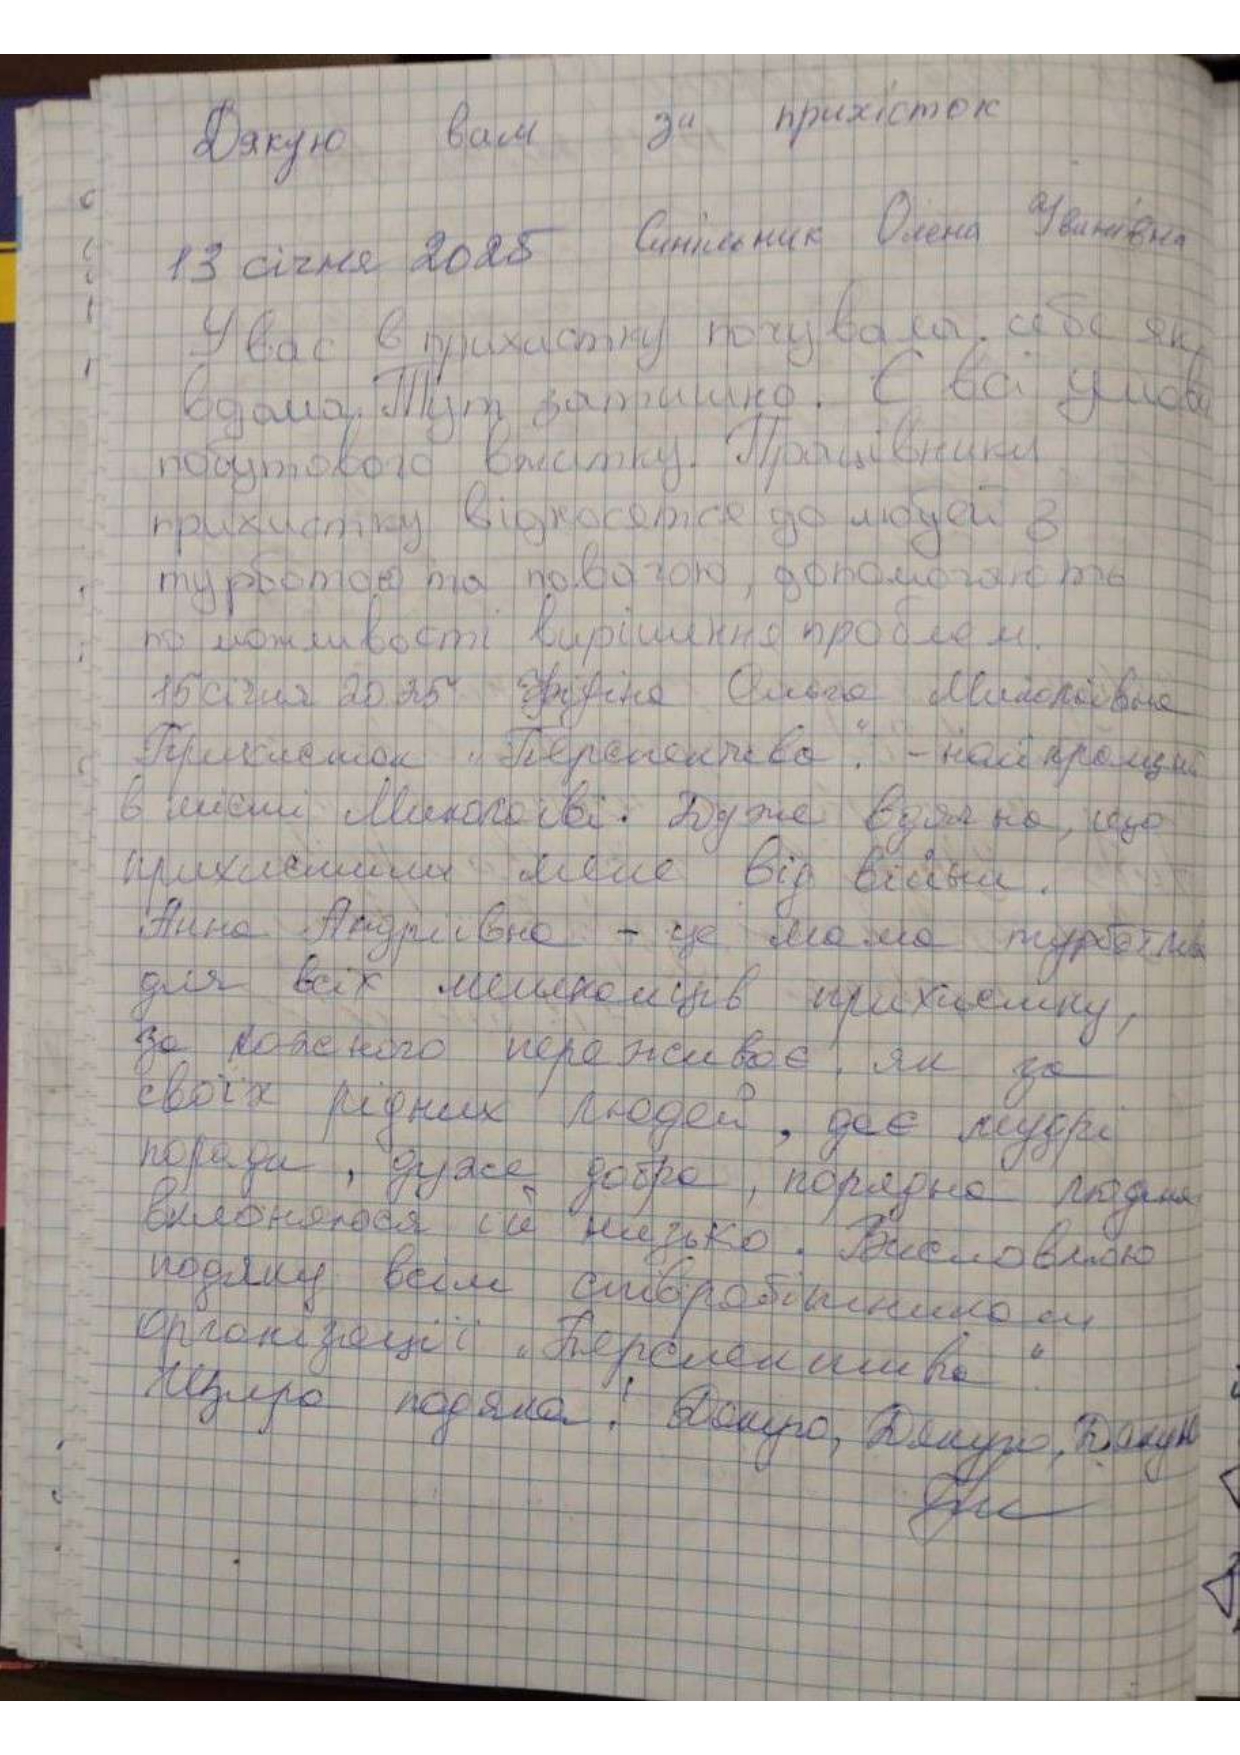 Дякую вам за прихісток
13 січня 2025 Олена Іванівна
У вас в прихистку почувала себе як
вдома. Тут затишно. Є всі умови
побутового вжитку. Працівники
прихистку відносятся до людей з
турботою та повагою, допомогають
по можливості вирішення проблем.
15 січня 2025 Ольга Миколаївна
Прихисток "Перспектива". - найкращий
в місті Миколаїві. Дуже вдячна, що
прихистили мене від війни.
Анна Андріївна - це мама турботлива
для всіх мешканців прихистку,
за кожного переживає, як за
своїх рідних людей, дає мудрі
поради, дуже добра, порядна людина
вклоняюся їй низько. Висловлюю
подяку всім співробітникам
організації "Перспектива"
Щира подяка! Дякую, Дякую, Дякую